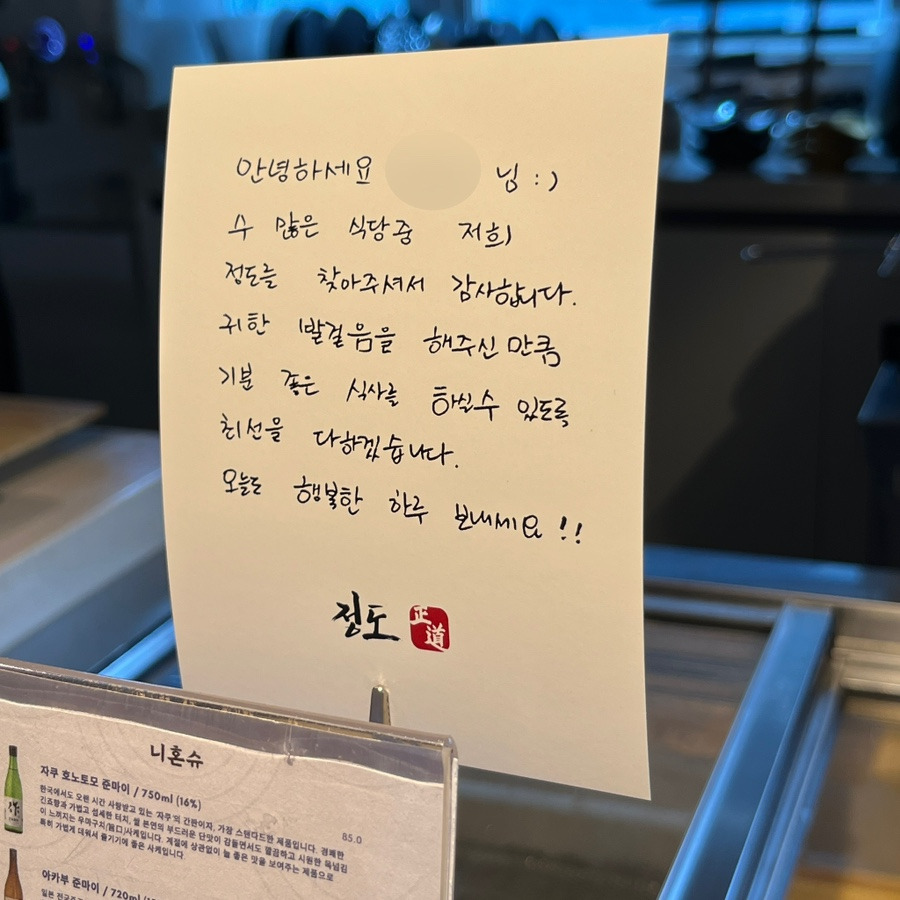 안녕하세요 님 :)
수 많은 식당중 저희
정도를 찾아주셔서 감사합니다.
귀한 발걸음을 해주신 만큼
기분 좋은 식사를 하실수 있도록
최선을 다하겠습니다.
오늘도 행복한 하루 보내세요 !!
정도 正道
니혼슈
자쿠 호노토모 준마이 / 750ml (16%)
한국에서도 오랜 시간 사랑받고 있는 '자쿠'의 간판이자, 가장 스탠다드한 제품입니다. 경쾌한
긴죠향과 가볍고 섬세한 터치, 쌀 본연의 부드러운 단맛이 감돌면서도 깔끔하고 시원한 목넘김
이 느껴지는 우마구지(旨口)사케입니다. 계절에 상관없이 늘 좋은 맛을 보여주는 제품으로
특히 가볍게 데워서 즐기기에 좋은 사케입니다.
85.0
아카부 준마이 / 720ml